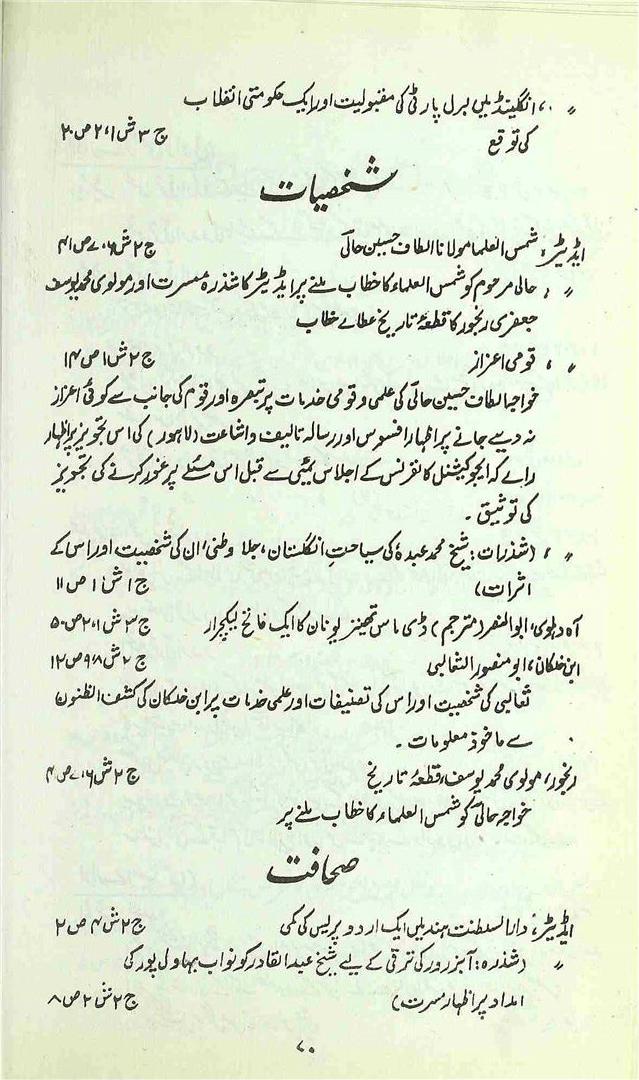 〃 ، انگلینڈ میں لبرل پارٹی کی مقبولیت اور ایک حکومتی انقلاب
کی توقع ج ۳ ش ۲،۱ ص ۲۰
شخصیات
ایڈیٹر، شمس العلما مولانا الطاف حسین حالیؔ ج ۲ ش ۷،۶ ص ۴۱
〃 ، حالی مرحوم کو شمس العلماء کا خطاب ملنے پر ایڈیٹر کا شذرہ مسرت اور مولوی محمد یوسف
جعفری رنجور کا قطعۂ تاریخ عطاے خطاب
〃 ، قومی اعزاز ج ۲ ش ۱ ص ۱۴
خواجہ الطاف حسین حالیؔ کی علمی و قومی خدمات پر تبصرہ اور قوم کی جانب سے کوئی اعزاز
نہ دیے جانے پر اظہار افسوس اور رسالہ تالیف و اشاعت (لاہور) کی اس تجویز پر اظہار
راے کہ ایجوکیشنل کانفرنس کے اجلاس بمبئی سے قبل اس مسئلے پر غور کرنے کی تجویز
کی توثیق ۔
〃 ، (شذرات: شیخ محمد عبدہٗ کی سیاحتِ انگلستان، جلا وطنی، ان کی شخصیت اور اس کے
اثرات) ج ۱ ش ۱ ص ۱۱
آہ دہلوی، ابوالنصر (مترجم) ڈی ماس تھینز یونان کا ایک فاتح لیکچرار ج ۳ ش ۲،۱ ص ۵۰
ابن خلکان، ابو منصور الثعالبی ج ۲ ش ۹،۸ ص ۱۲
ثعالبی کی شخصیت اور اس کی تصنیفات اور علمی خدمات پر ابن خلکان کی کشف الظنون
سے ماخوذ معلومات ۔
رنجور، مولوی محمد یوسف، قطعۂ تاریخ ج ۲ ش ۷،۶ ص ۴
خواجہ حالیؔ کو شمس العلماء کا خطاب ملنے پر
صحافت
ایڈیٹر، دارالسلطنت ہند میں ایک اردو پریس کی کمی ج ۲ ش ۴ ص ۲
〃 (شذرہ: آبزرور کی ترقی کے لیے شیخ عبدالقادر کو نواب بہاول پور کی
امداد پر اظہار مسرت) ج ۲ ش ۲ ص ۸
۷۰